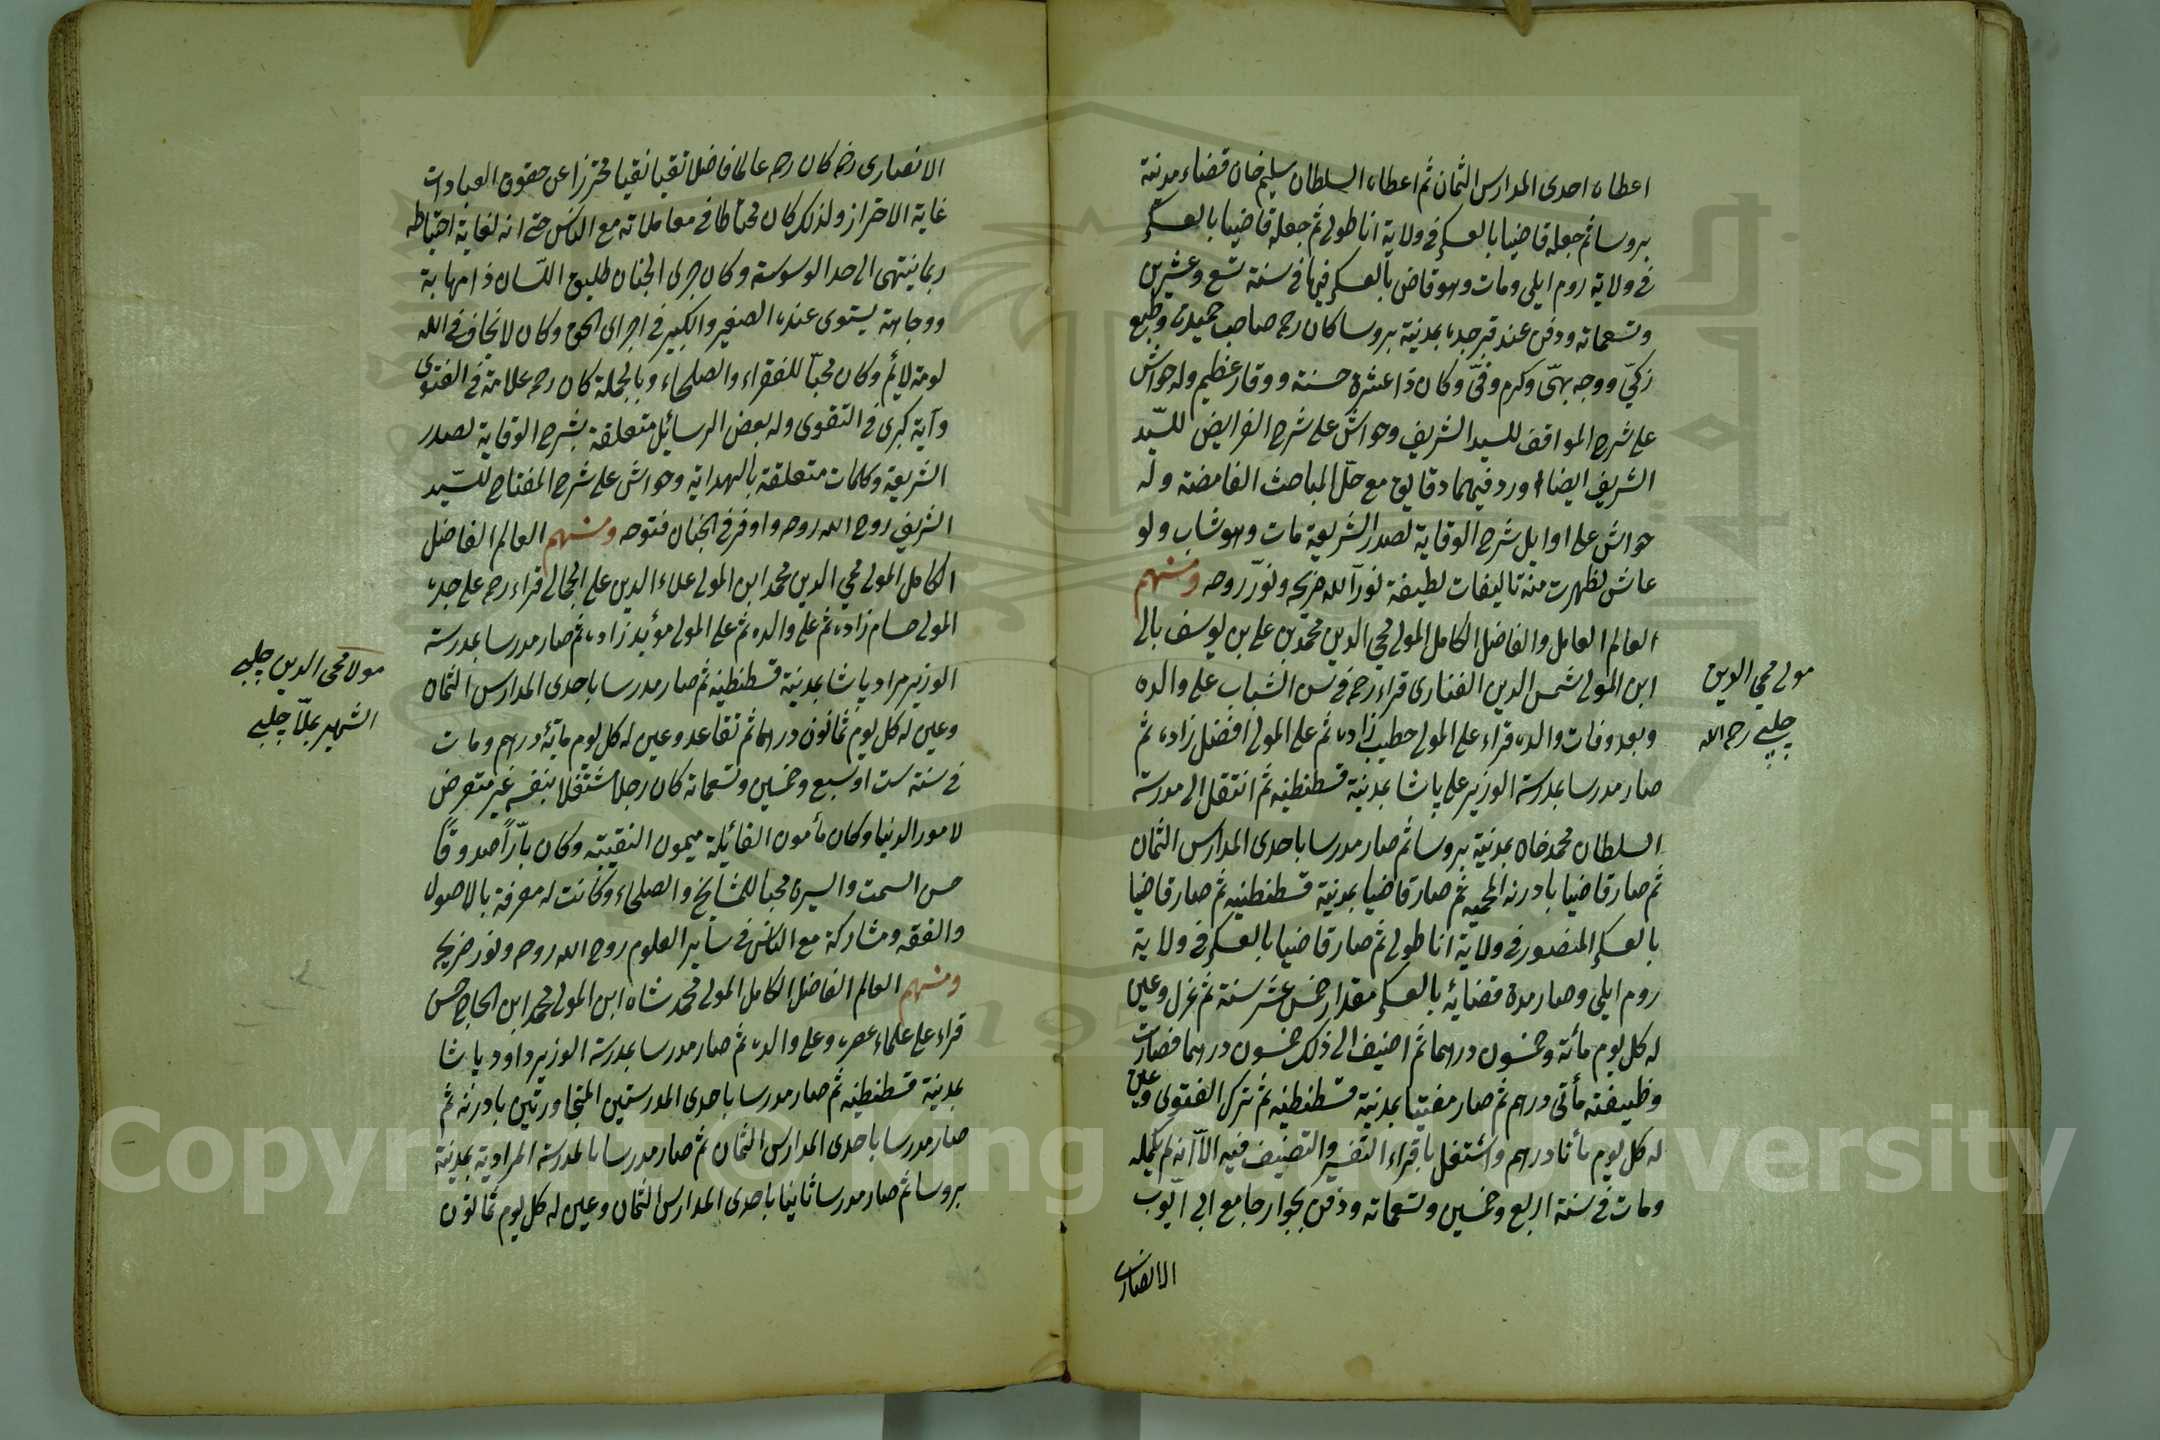 اعطاه احدى المدارس الثمان ثم اعطاه السلطان سليم خان قضاء مدينة
بروسا ثم جعله قاضيا بالعسكر في ولاية اناطولي ثم جعله قاضيا بالعسكر
في ولاية روم ايلي ومات وهو قاض بالعسكر فيها في سنة تسع وعشرين
وتسعمائة ودفن عند قبر جده بمدينة بروسا كان رحمه صاحب حميدة وطبع
زكيّ ووجه بهيّ وكرم وفيّ وكان ذا عشرة حسنة ووقار عظيم وله حواش
على شرح المواقف للسيد الشريف وحواش على شرح الفرايض للسيّد
الشريف ايضا اورد فيهما دقايق مع حلّ المباحث الغامضة وله
حواش على اوايل شرح الوقاية لصدر الشريعة مات وهو شاب ولو
عاش لظهرت منه تاليفات لطيفة نور الله ضريحه ونوّر روحه ومنهم
العالم العامل والفاضل الكامل المولى محي الدين محمد بن علي بن يوسف بالي
ابن المولى شمس الدين الفناري قراء رحمه في سن الشباب على والده
وبعد وفات والده قراء على المولى خطيب زاده ثم على المولى افضل زاده ثم
صار مدرسا بمدرسة الوزير علي پاشا بمدينة قسطنطنيه ثم انتقل الى مدرسة
السلطان محمد خان بمدينة بروسا ثم صار مدرسا باحدى المدارس الثمان
ثم صار قاضيا بادرنه المحميه ثم صار قاضيا بمدينة قسطنطنيه ثم صار قاضيا
بالعسكر المنصور في ولاية اناطولي ثم صار قاضيا بالعسكر في ولاية
روم ايلي وصار مدة قضائه بالعسكر مقدار خمس عشر سنة ثم عزل وعين
له كل يوم مائة وخمسون درهما ثم اضيف الى ذلك خمسون درهما فصارت
وظيفته مأتى درهم ثم صار مفتيا بمدينة قسطنطنيه ثم ترك الفتوى وعين
له كل يوم مأتا درهم واشتغل باقراء التفسير والتصنيف فيه الا انه لم يكمله
ومات في سنة اربع وخمسين وتسعمائة ودفن بجوار جامع ابي ايوب
الانصارى
مولى محي الدين
چلبي رحمه الله
الانصارى رضه كان رحمه عالما فاضلا تقيا نقيا محترزا عن حقوق العبادات
غاية الاحتراز ولذلك كان محتاطا في معاملاته مع الناس حتى انه لغاية احتياطه
ربما ينتهى الى حد الوسوسة وكان جرى الجنان طليق اللسان ذا مهابة
ووجاهة يستوى عنده الصغير والكبير في اجراى الحق وكان لا يخاف في الله
لومة لائم وكان محبا للفقراء والصلحاء وبالجملة كان رحمه علامة في الفتوى
وآية كبرى في التقوى وله بعض الرسائل متعلقة بشرح الوقاية لصدر
الشريعة وكلمات متعلقة بالهداية وحواش على شرح المفتاح للسيّد
الشريف روح الله روحه واوفر في الجنان فتوحه ومنهم العالم الفاضل
الكامل المولى محي الدين محمد ابن المولى علاء الدين علي الجمالي قراء رحمه على جده
المولى حسام زاده ثم على والده ثم على المولى مؤيد زاده ثم صار مدرسا بمدرسة
الوزير مراد پاشا بمدينة قسطنطنيه ثم صار مدرسا باحدى المدارس الثمان
وعين له كل يوم ثمانون درهما ثم تقاعد وعين له كل يوم مائة درهم ومات
في سنة ست او سبع وخمسين وتسعمائة كان رجلا مشتغلا بنفسه غير متعرض
لامور الدنيا وكان مأمون الغائلة ميمون النقيبة وكان بارّاً صدوقاً
حسن السمت والسيرة محبا للمشايخ والصلحاء وكانت له معرفة بالاصول
والفقه ومشاركة مع الناس في ساير العلوم روح الله روحه ونور ضريحه
ومنهم العالم الفاضل الكامل المولى محمد شاه ابن المولى محمد ابن الحاج حسن
قراء على علماء عصره وعلى والده ثم صار مدرسا بمدرسة الوزير داود پاشا
بمدينة قسطنطنيه ثم صار مدرسا باحدى المدرستين المتجاورتين بادرنه ثم
صار مدرسا باحدى المدارس الثمان ثم صار مدرسا بالمدرسة المرادية بمدينة
بروسا ثم صار مدرسا ثانيا باحدى المدارس الثمان وعين له كل يوم ثمانون
مولانا محي الدين چلبي
الشهير بملا چلبي
Copyright © King Saud University
1957